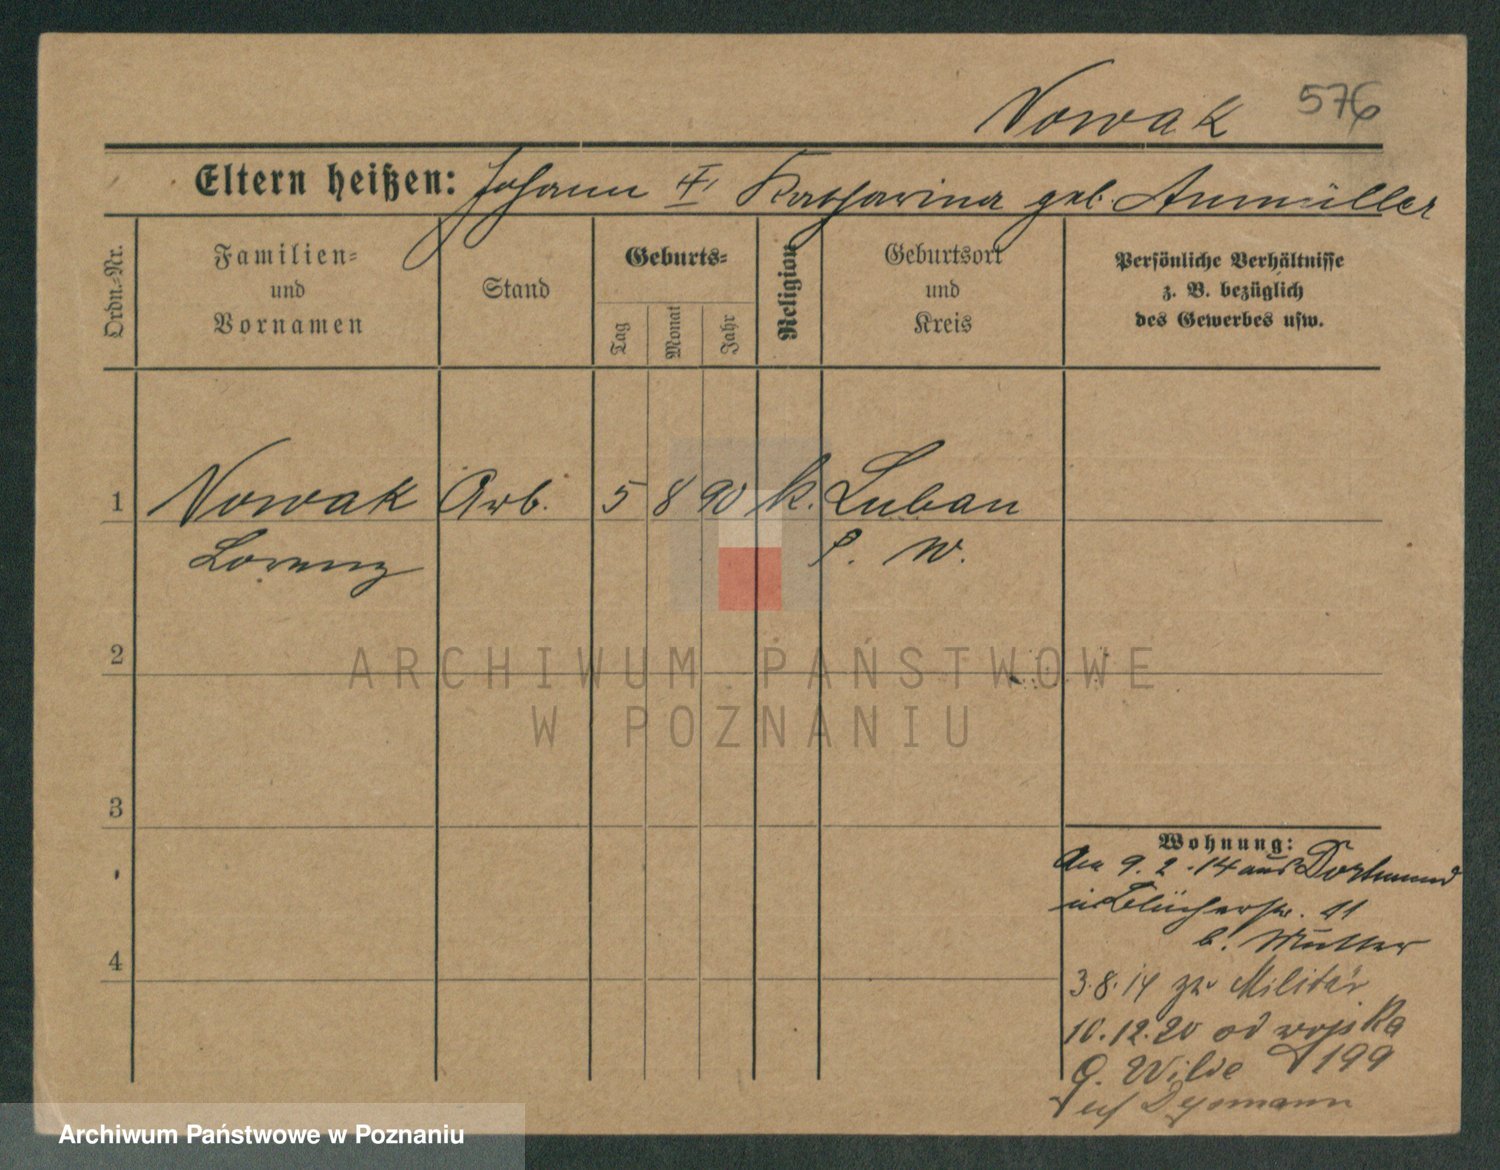 Nowak 576
Eltern heißen: Johann ✝ Katharina geb. Anmüller
Ordn.-Nr.
Familien-
und
Vornamen
Stand
Geburts-
Tag
Monat
Jahr
Religion
Geburtsort
und
Kreis
Persönliche Verhältnisse
z. B. bezüglich
des Gewerbes usw.
1 Nowak Arb. 5 8 90 k. Luban
Lorenz P. W.
2
ARCHIWUM PAŃSTWOWE
W POZNANIU
3
Wohnung:
Am 9.2.14 aus Dortmund
in Blücherstr. 11
b. Mutter
4
3.8.14 zu Militär
10.12.20 od wojska
G. Wilde 199
Archiwum Państwowe w Poznaniu